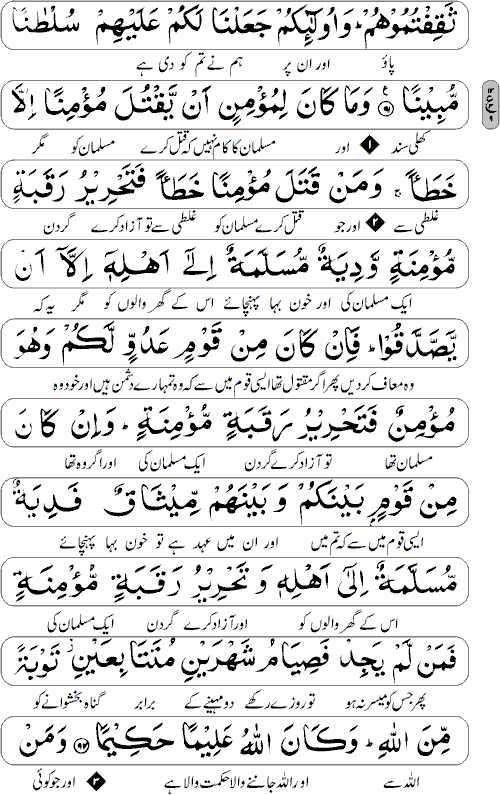 ثَقِفْتُمُوْهُمْ ؕ وَاُولٰٓئِكُمْ جَعَلْنَا لَكُمْ عَلَيْهِمْ سُلْطٰنًا
پاؤ اور ان پر ہم نے تم کو دی ہے
مُّبِيْنًا ۹۱ وَمَا كَانَ لِمُؤْمِنٍ اَنْ يَّقْتُلَ مُؤْمِنًا اِلَّا
کھلی سند ۱ اور مسلمان کا کام نہیں کہ قتل کرے مسلمان کو مگر
خَطَـًٔا ۚ وَمَنْ قَتَلَ مُؤْمِنًا خَطَـًٔا فَتَحْرِيْرُ رَقَبَةٍ
غلطی سے ۲ اور جو قتل کرے مسلمان کو غلطی سے تو آزاد کرے گردن
مُّؤْمِنَةٍ وَّدِيَةٌ مُّسَلَّمَةٌ اِلٰٓى اَهْلِهٖٓ اِلَّآ اَنْ
ایک مسلمان کی اور خون بہا پہنچائے اس کے گھر والوں کو مگر یہ کہ
يَّصَّدَّقُوْا ؕ فَاِنْ كَانَ مِنْ قَوْمٍ عَدُوٍّ لَّكُمْ وَهُوَ
وہ معاف کردیں پھر اگر مقتول تھا ایسی قوم میں سے کہ وہ تمہارے دشمن ہیں اور خود وہ
مُؤْمِنٌ فَتَحْرِيْرُ رَقَبَةٍ مُّؤْمِنَةٍ ؕ وَاِنْ كَانَ
مسلمان تھا تو آزاد کرے گردن ایک مسلمان کی اور اگر وہ تھا
مِنْ قَوْمٍۭ بَيْنَكُمْ وَبَيْنَهُمْ مِّيْثَاقٌ فَدِيَةٌ
ایسی قوم میں سے کہ تم میں اور ان میں عہد ہے تو خون بہا پہنچائے
مُّسَلَّمَةٌ اِلٰٓى اَهْلِهٖ وَتَحْرِيْرُ رَقَبَةٍ مُّؤْمِنَةٍ ۚ
اس کے گھر والوں کو اور آزاد کرے گردن ایک مسلمان کی
فَمَنْ لَّمْ يَجِدْ فَصِيَامُ شَهْرَيْنِ مُتَتَابِعَيْنِ ۡ تَوْبَةً
پھر جس کو میسر نہ ہو تو روزے رکھے دو مہینے کے برابر گناہ بخشوانے کو
مِّنَ اللّٰهِ ؕ وَكَانَ اللّٰهُ عَلِيْمًا حَكِيْمًا ۹۲ وَمَنْ
اللہ سے اور اللہ جاننے والا حکمت والا ہے ۳ اور جو کوئی